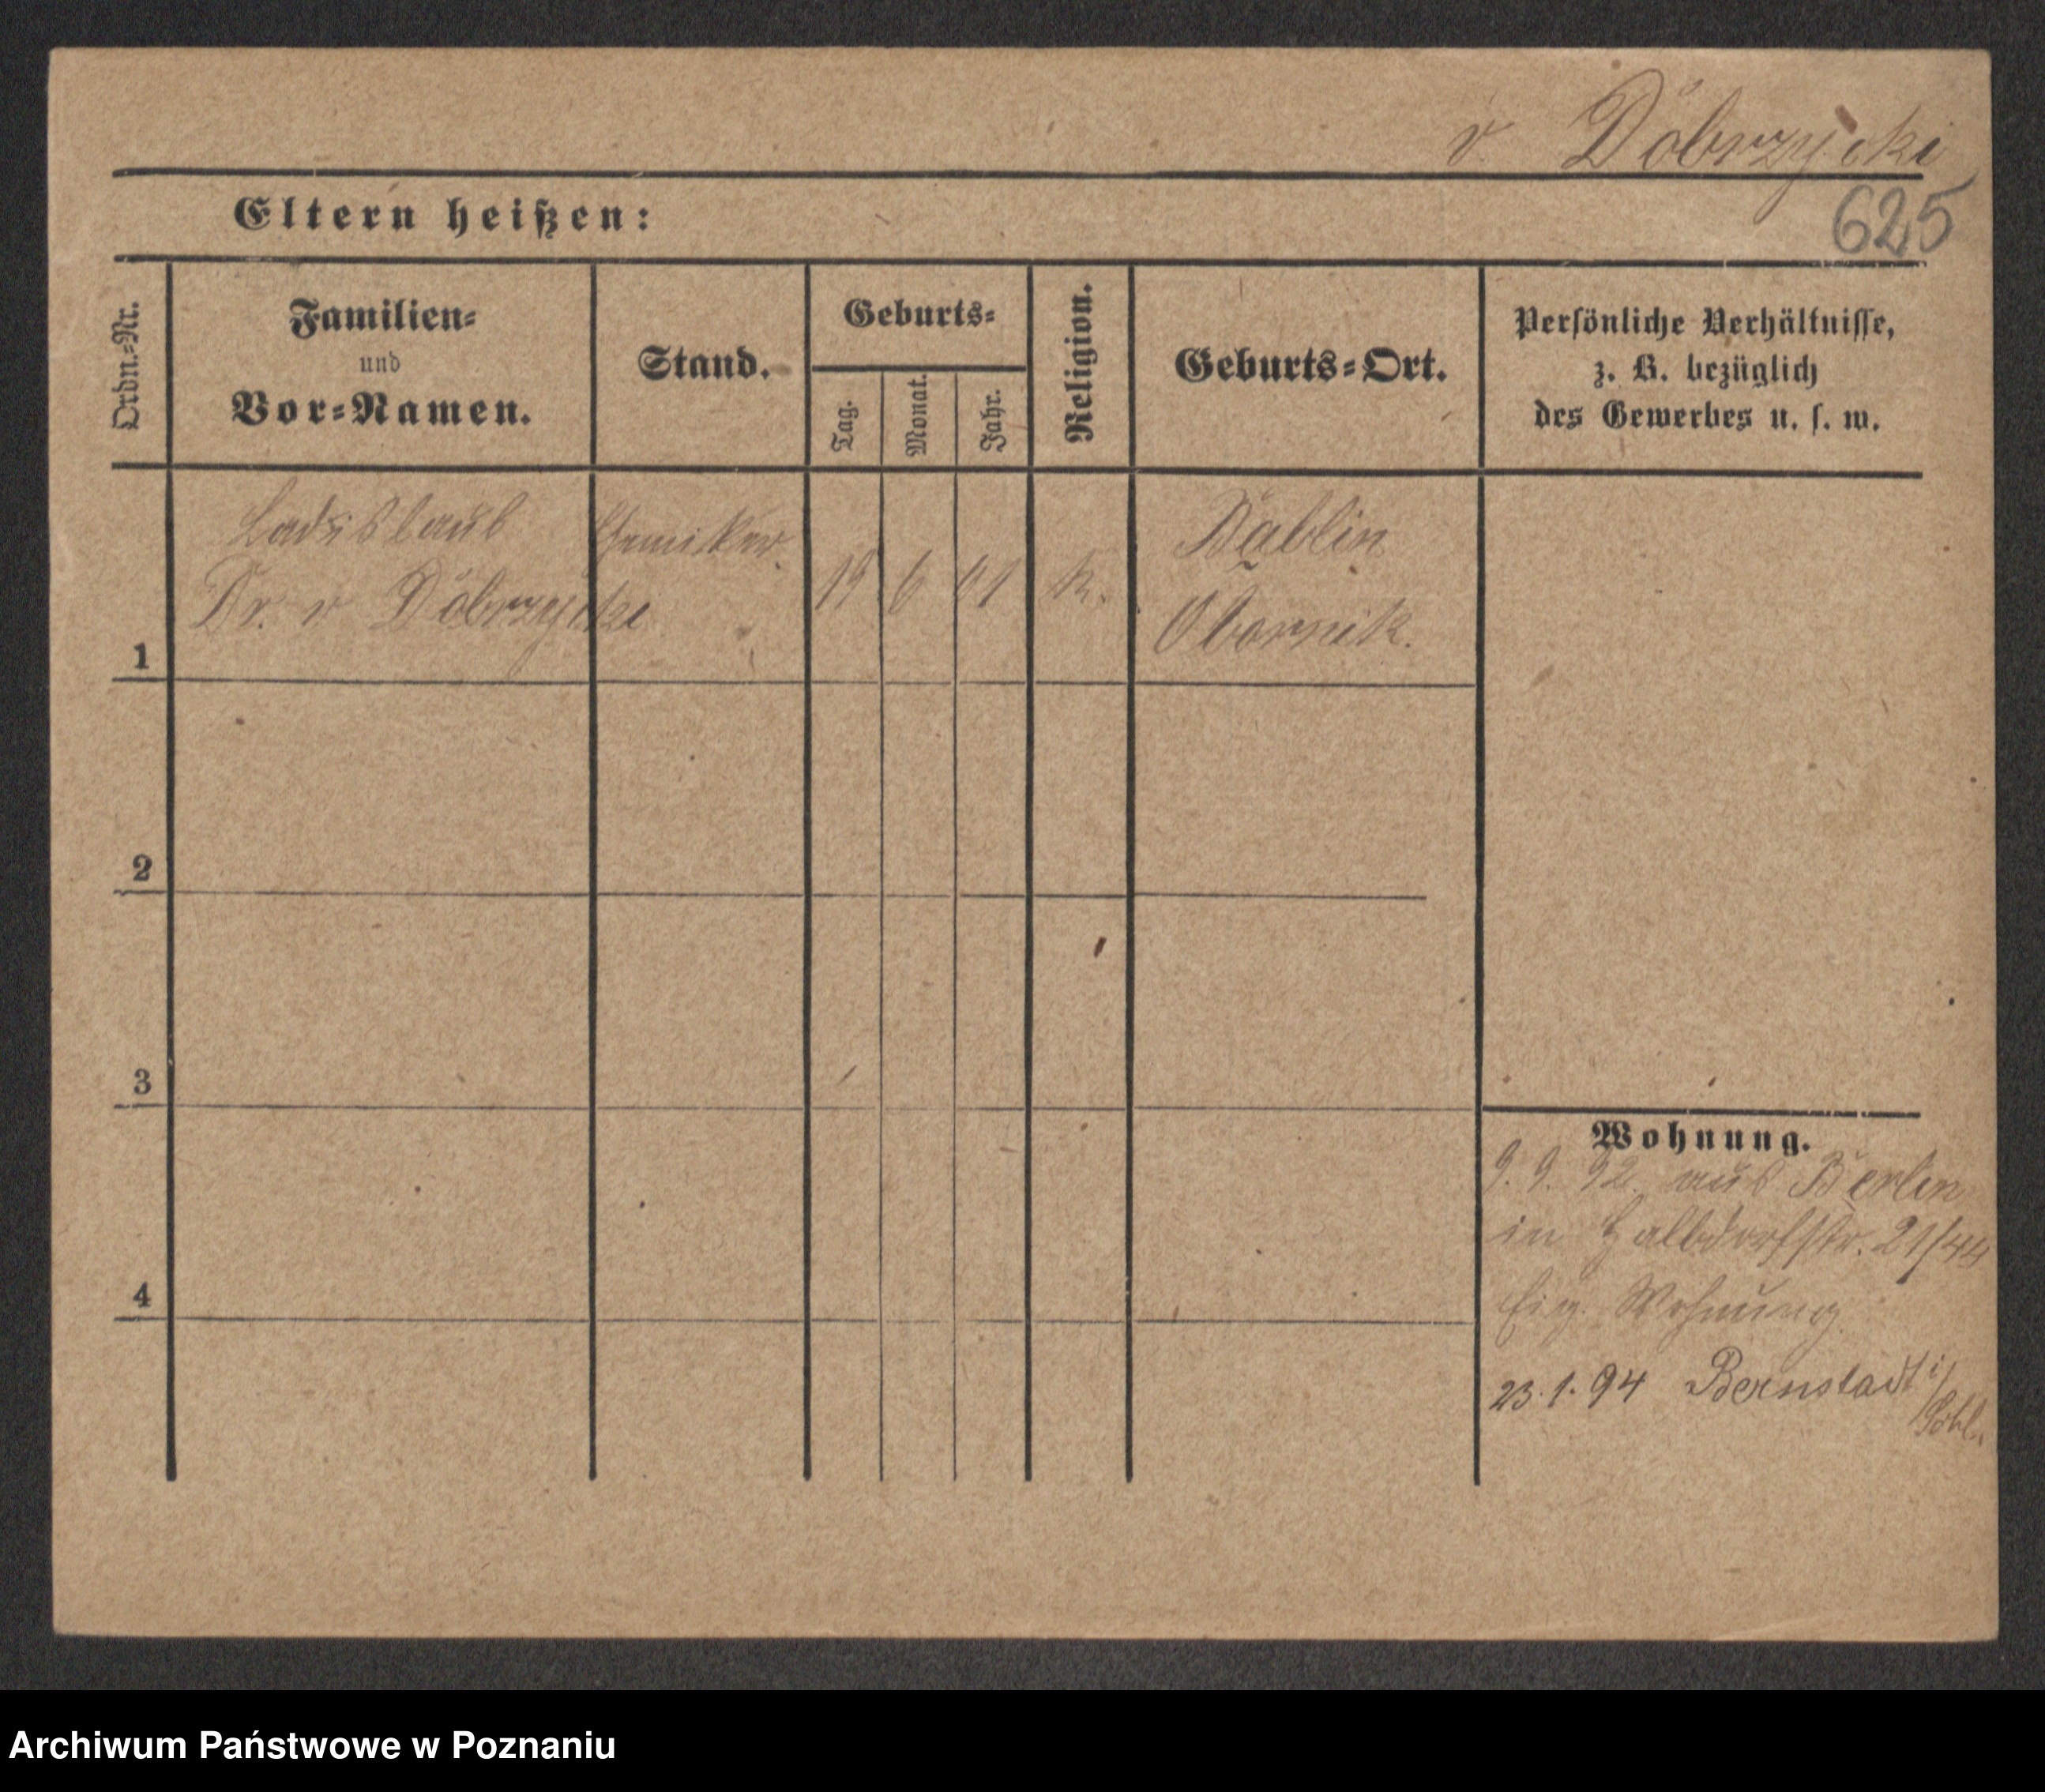 v. Dobrzycki
Eltern heißen:
625
Ordn.-Nr.
Familien-
und
Vor-Namen.
Stand.
Geburts-
Tag.
Monat.
Jahr.
Religion.
Geburts-Ort.
Persönliche Verhältnisse,
z. B. bezüglich
des Gewerbes u. s. w.
1
Ladislaus
Dr. v Dobrzycki
Chemiker
19 6 61 k.
Bablin
Obornik.
2
3
4
Wohnung.
9. 9. 92. aus Berlin
in Halbdorfstr. 21/44
Eig. Wohnung
23. 1. 94 Bernstadt i/
Schl.
Archiwum Państwowe w Poznaniu